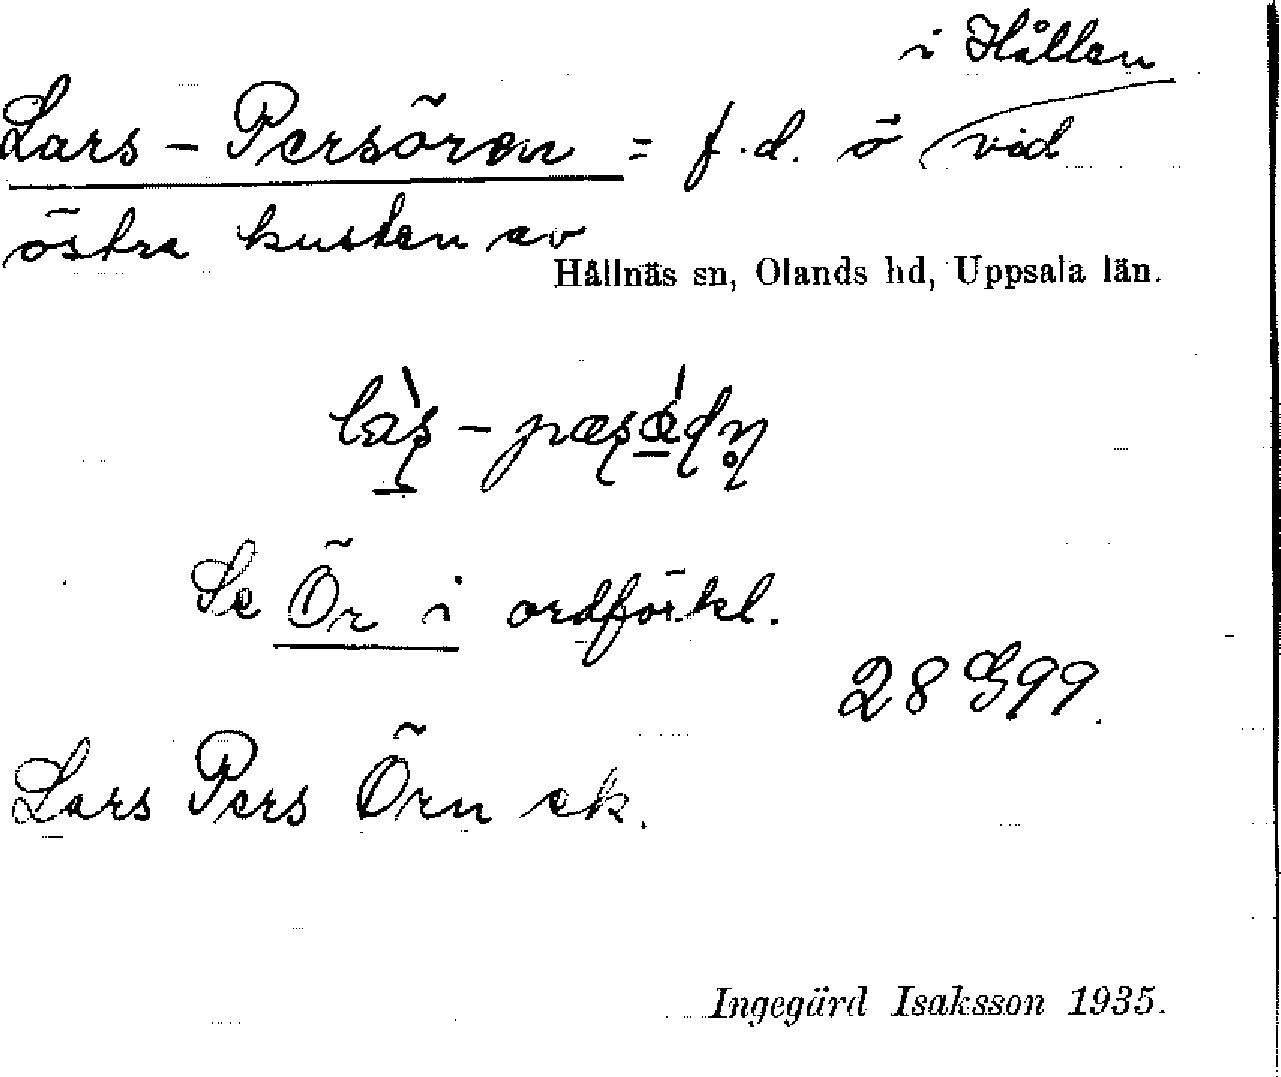 i Hållen
Lars-Persören = f.d. ö vid
östra kusten av
Hållnäs sn, Olands hd, Uppsala län.
Se Ör i ordförkl.
28 G 99.
Lars Pers Örn ek.
Ingegärd Isaksson 1935.